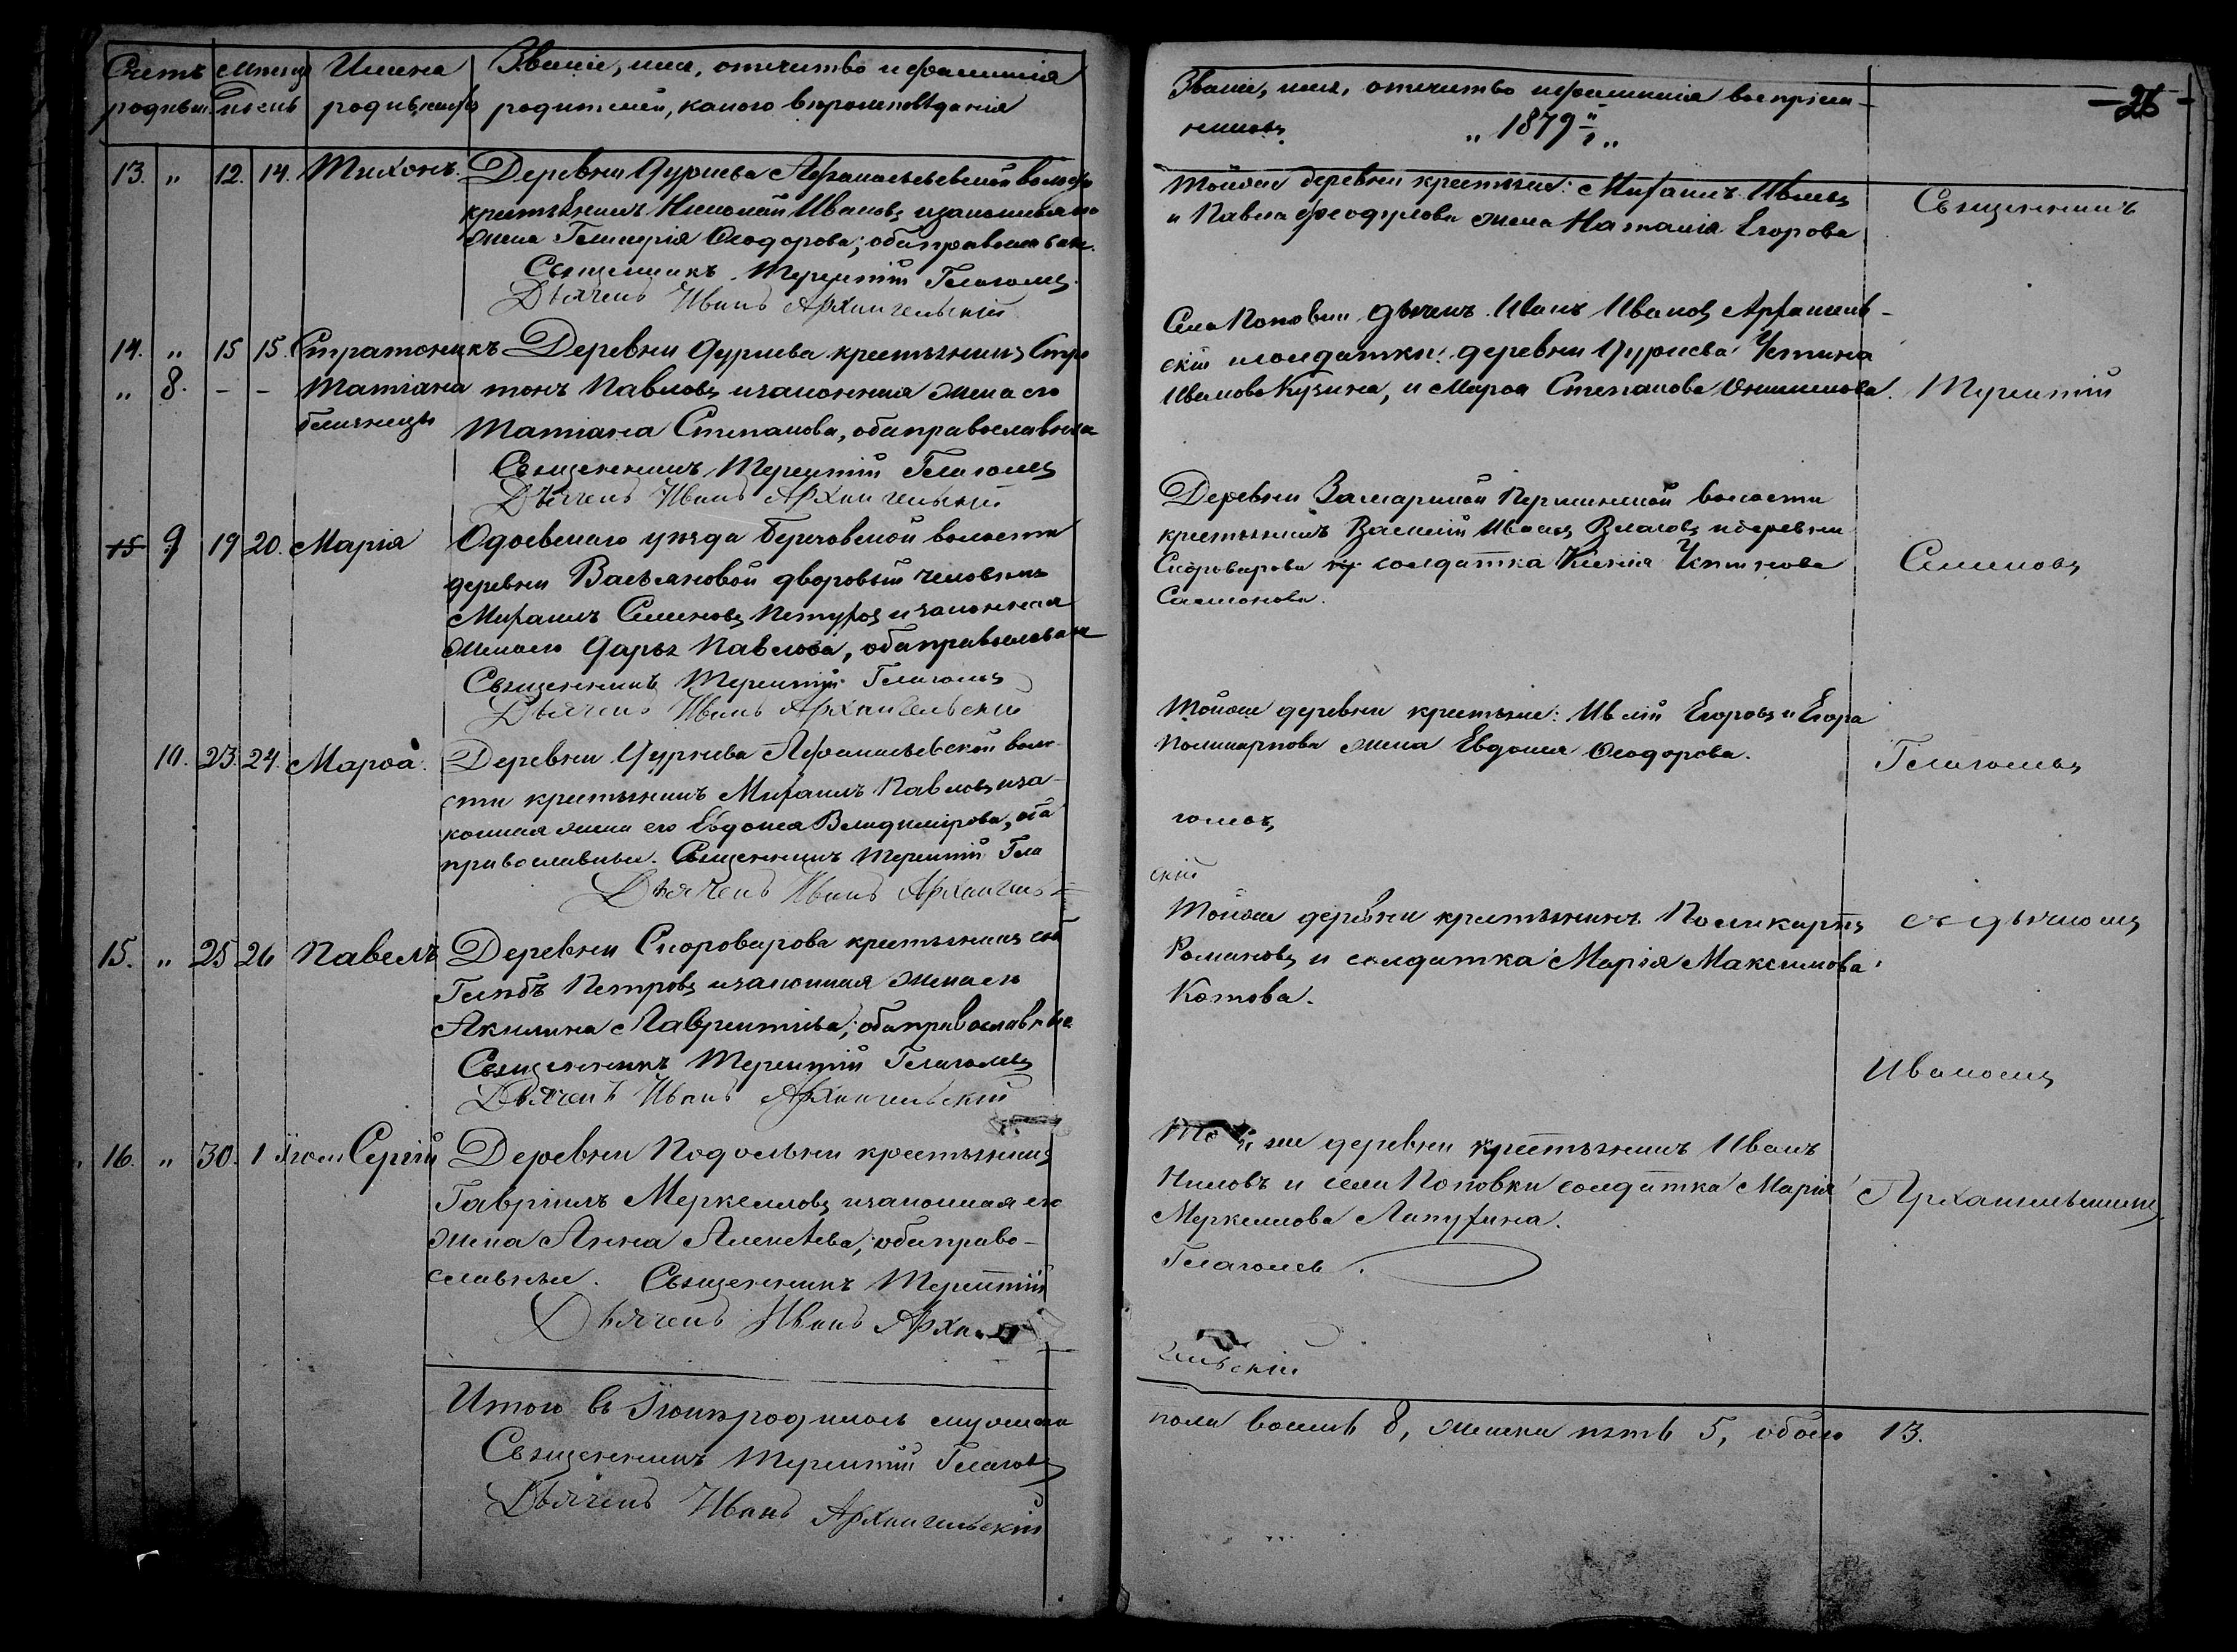 Счетъ Мѣсяцъ Имена Званіе, имя, отчество и фамилія
родивш. День родившихъ родителей, какого вѣроисповѣданія
13. " 12. 14. Тихонъ. Деревни Дуриева Афанасьевской волости
крестьянинъ Николай Ивановъ и законная его
жена Гликерія Ѳеодорова; оба православн.
Священникъ Терентій Глаголевъ
Дьячекъ Иванъ Архангельскій
14. " 15 15. Стратоникъ Деревни Дуриева крестьянинъ Стра
" 8. - - Татіана тонъ Павловъ и законная жена его
близнецы Татіана Степанова, оба православныя
Священникъ Терентій Глаголевъ
Дьячекъ Иванъ Архангельскій
15 9 19 20. Марія Одоевскаго уѣзда Стрѣлецкой волости
деревни дворовый человѣкъ
Михаилъ Семеновъ и законная
жена его Дарья Павлова, оба православн
Священникъ Терентій Глаголевъ
Дьячекъ Иванъ Архангельскій
10. 23. 24. Марѳа. Деревни Дуриева Афанасьевской воло-
сти крестьянинъ Михаилъ Павловъ и за-
конная жена его Евдокія Владимірова, оба
православные. Священникъ Терентій Гла
Дьячекъ Иванъ Архангель-
15. " 25 26 Павелъ Деревни Скороварова крестьянинъ
Глѣбъ Петровъ и законная жена его
Акилина Лаврентіева; оба православные
Священникъ Терентій Глаголевъ
Дьячекъ Иванъ Архангельскій
16. " 30. 1 Іюля Сергій Деревни Подосынки крестьянинъ
Гавріилъ Меркелловъ и законная его
жена Анна Алексѣева; оба право-
славные. Священникъ Терентій
Дьячекъ Иванъ Архан
Итого въ Іюнѣ родилось мужеска
Священникъ Терентій Глаголевъ
Дьячекъ Иванъ Архангельскій
Званіе, имя, отчество и фамилія воспріем-
никовъ. " 1879 "
Тойже деревни крестьяне: Михаилъ Ивановъ
и Павла Ѳеодулова жена Наталія Егорова
Священникъ
Села Поповки дьячекъ Иванъ Ивановъ Архангель-
скій и солдатки: деревни Дуриева Устина
Иванова Кузина, и Марѳа Степанова Онисимова.
Терентій
Деревни волости
крестьянинъ Василій Ивановъ Власовъ и деревни
Скороварова солдатка Ксенія Устинова
Самсонова.
Семеновъ
Тойже деревни крестьяне: Егоровъ и Егора
Поликарпова жена Евдокія Ѳеодорова.
Глаголевъ
голевъ
скій
Тойже деревни крестьянинъ Поликарпъ
Романовъ и солдатка Марія Максимова
Котова.
съ дьячкомъ
Иваномъ
Тойже деревни крестьянинъ Иванъ
Ниловъ и села Поповки солдатка Марія
Меркелова Лапухина.
Глаголев.
Архангельскимъ
гельскій
пола восемь 8, женска пять 5, обоего 13.